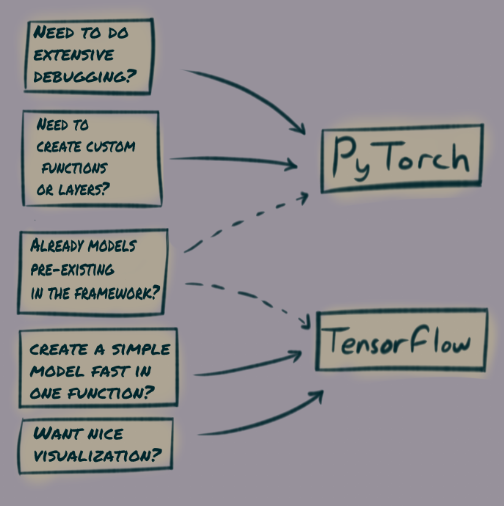 NEED TO DO
EXTENSIVE
DEBUGGING?
NEED TO
CREATE CUSTOM
FUNCTIONS
OR LAYERS?
PyTorch
ALREADY MODELS
PRE-EXISTING
IN THE FRAMEWORK?
CREATE A SIMPLE
MODEL FAST IN
ONE FUNCTION?
TensorFlow
WANT NICE
VISUALIZATION?